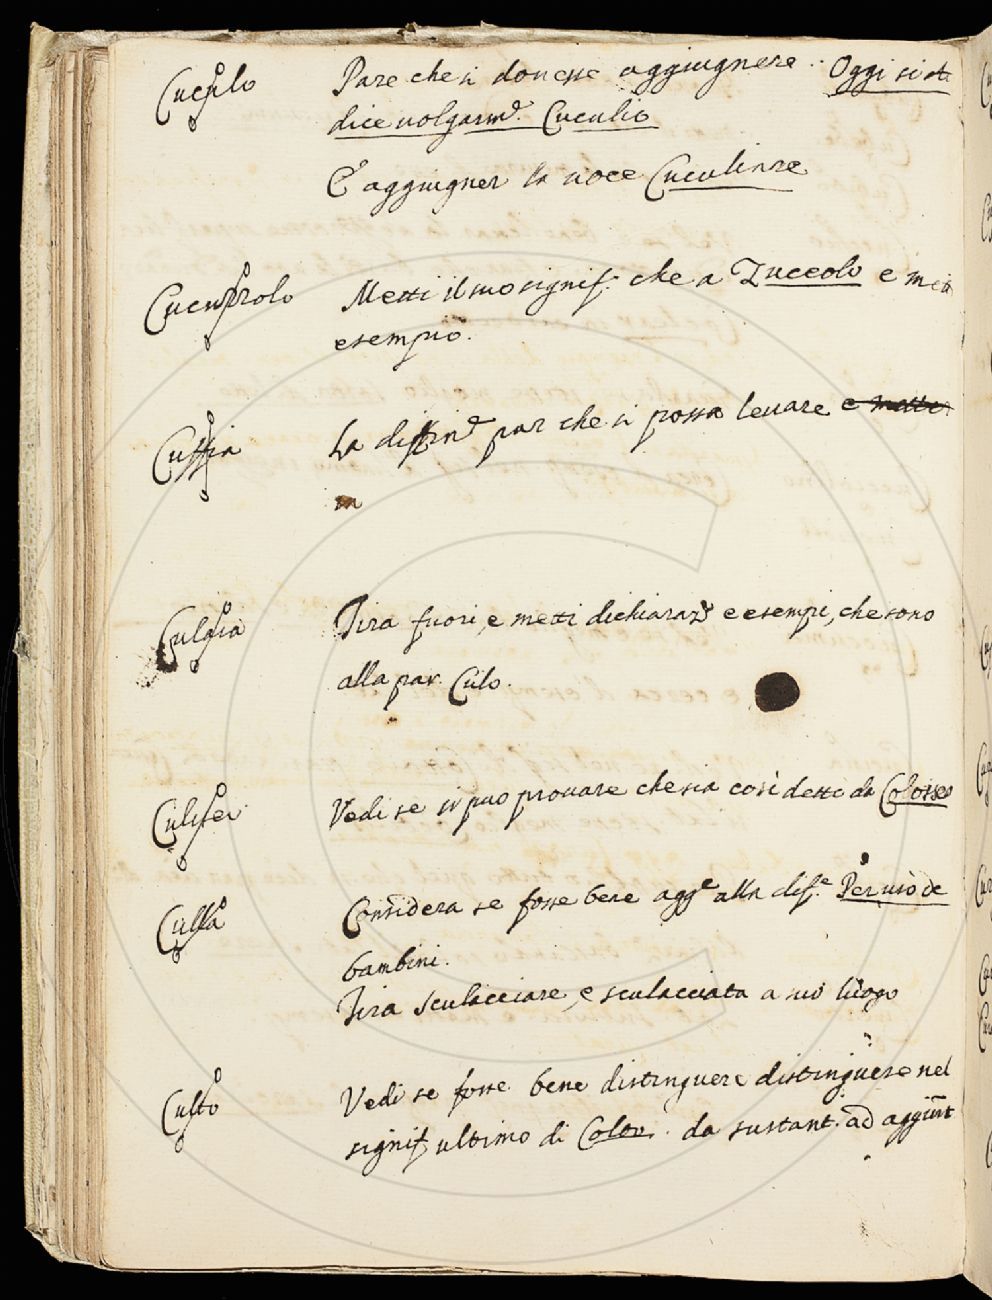 Cuculo Pare che si dovesse aggiugnere. Oggi si
dice volgarm.e Cuculio
E aggiugner la voce Cuculiare
Cucuzzolo Metti il suo signif. che a Zuccolo e
esempio.
Cuffia La diffin.e par che si possa levare e mette
in
Culaia Tira fuori, e metti dichiaraz.e e esempi, che sono
alla par. Culo.
Culisei Vedi se si puo provare che sia così detto da Coloiseo
Culla Considera se fosse bene agg.e alla dif.e Per uso de
bambini.
Tira sculacciare, e sculacciata a suo luogo
Culto Vedi se fosse bene distinguere distinguere nel
signif. ultimo di Colto. da sustant. ad aggiunt